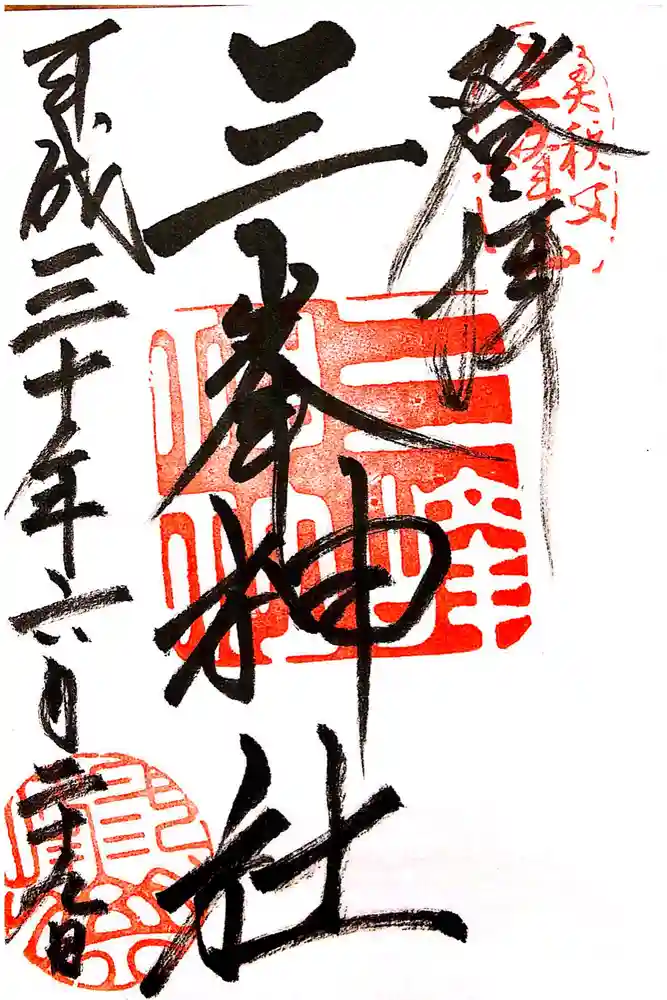 登拝
奥秩父
三峯山
三峯神社
三峯神社
平成三十年六月二十九日